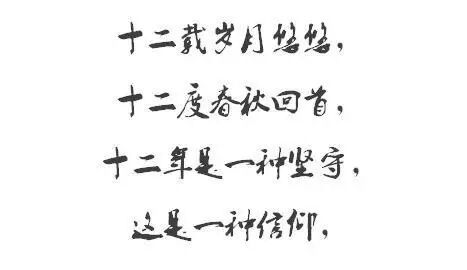 十二载岁月悠悠，
十二度春秋回首，
十二年是一种坚守，
这是一种信仰，